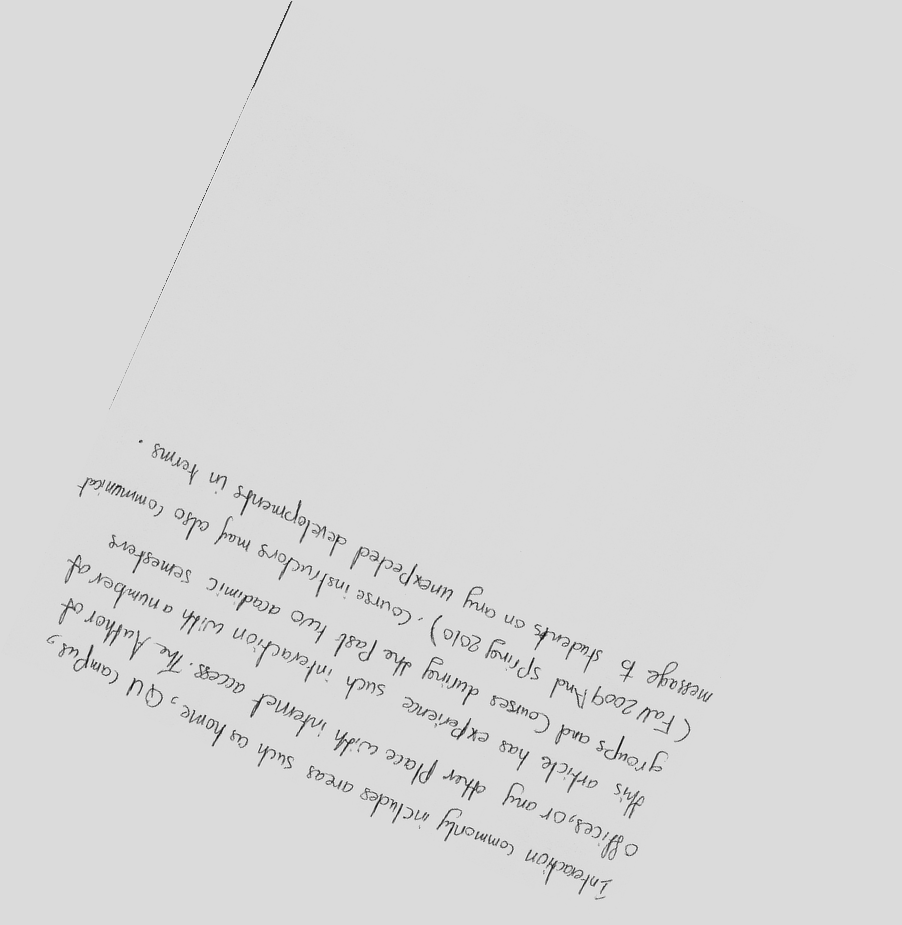 Interaction commonly includes areas such as home, QU campus,
offices, or any other place with internet access. The Author of
this article has experience such interaction with a number of
groups and Courses during the past two acadimic semesters
(Fall 2009 And spring 2010). Course instructors may also communicat
message to students on any unexpected developments in terms.